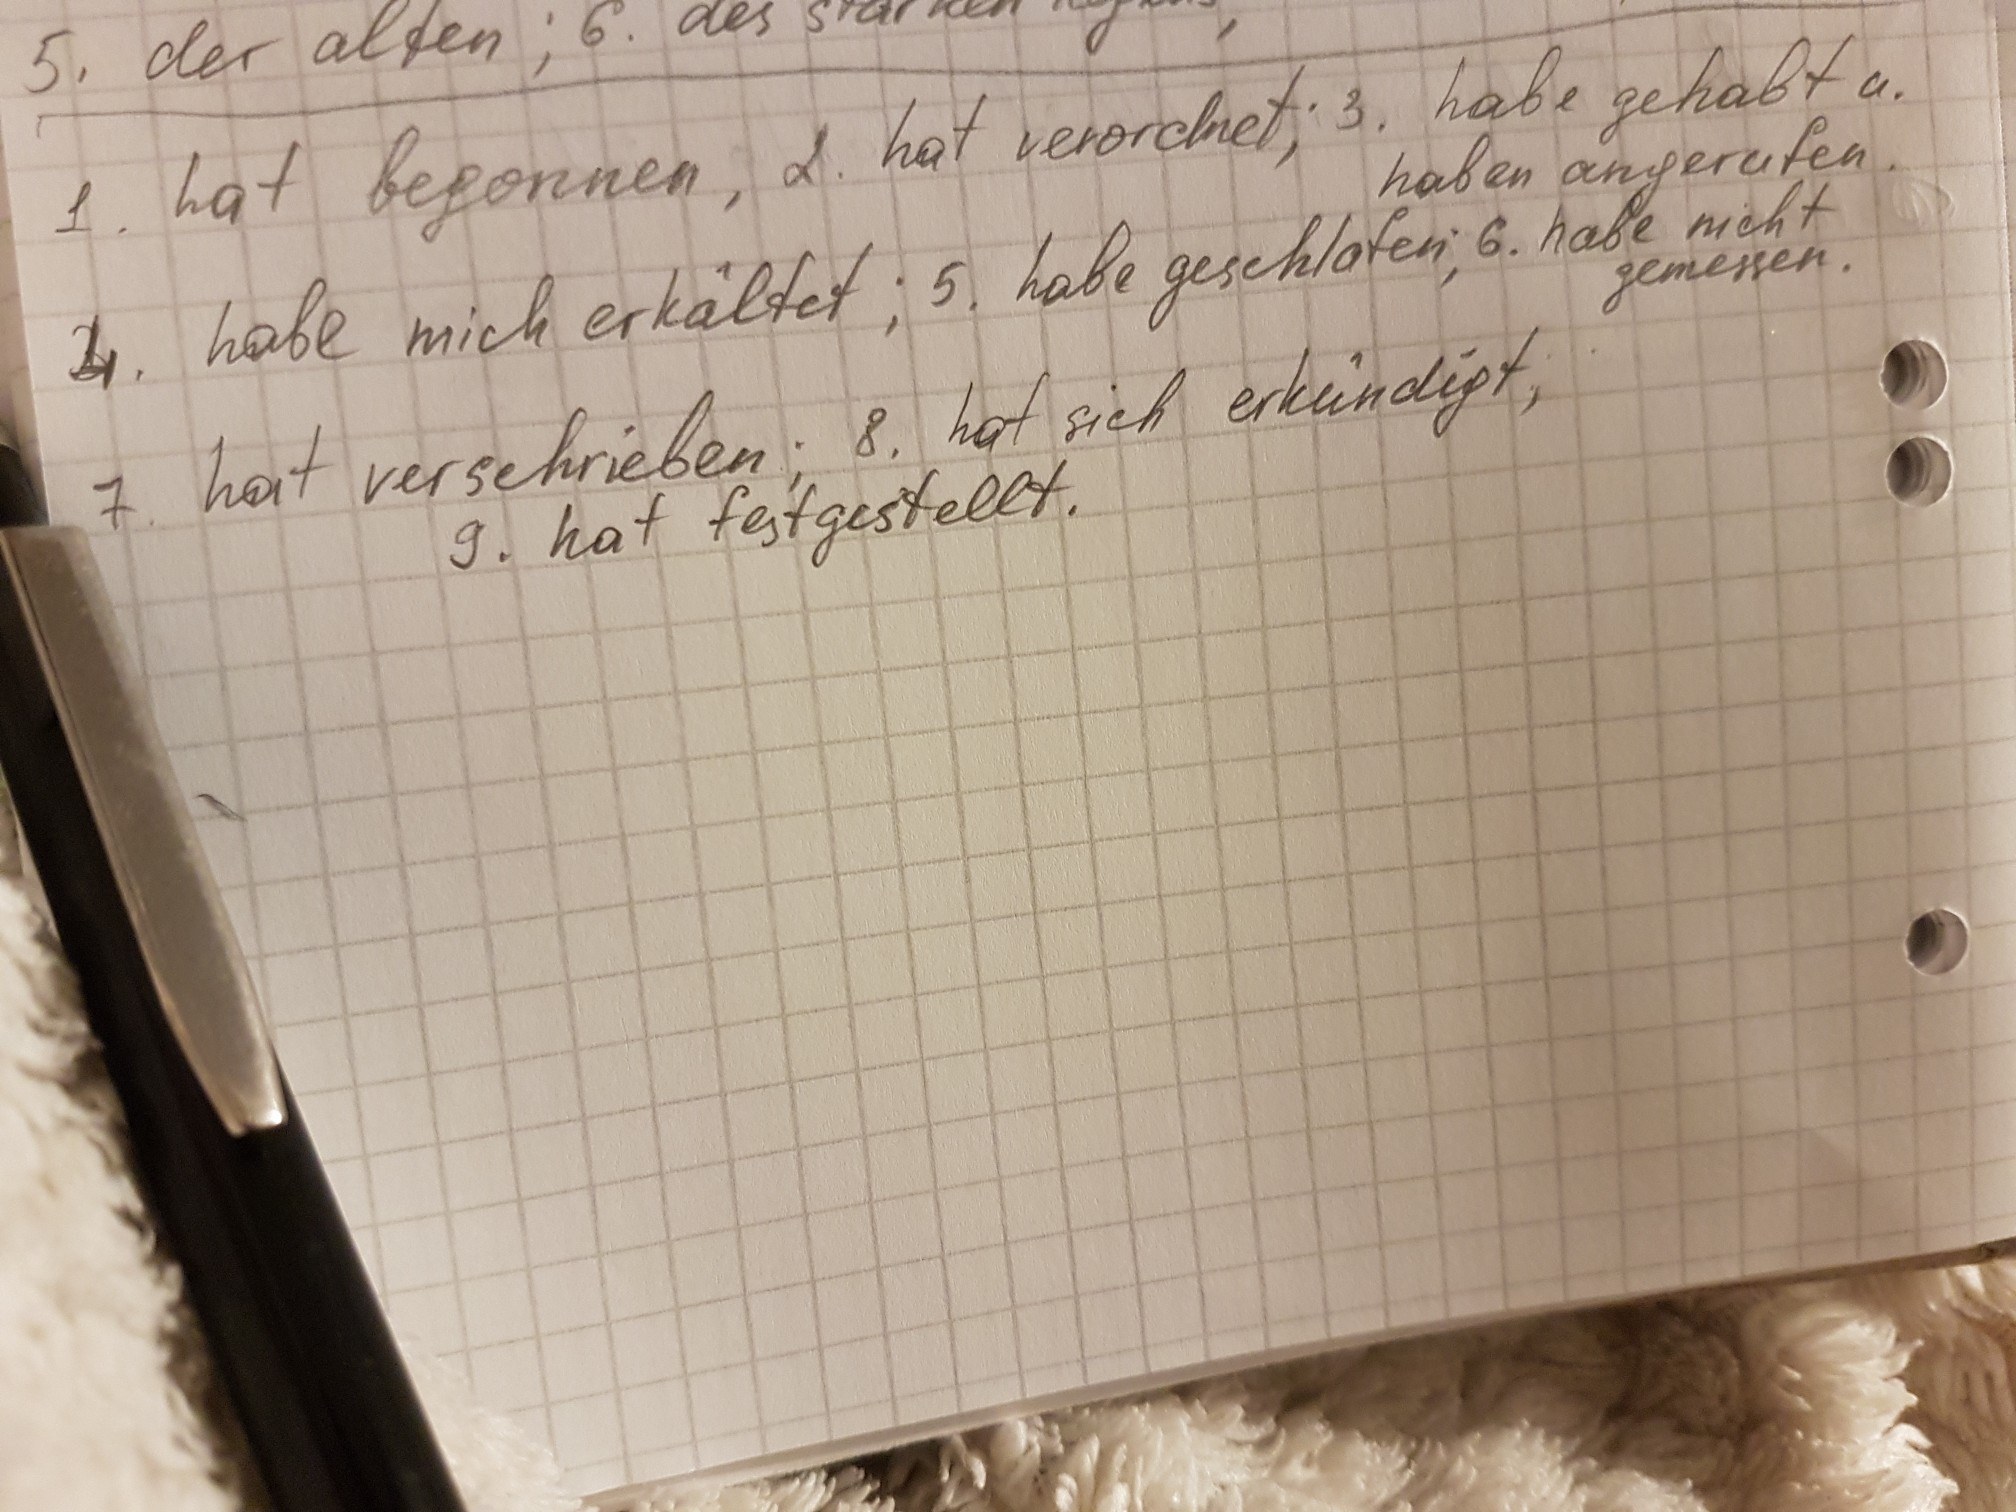 5. der alten; 6. des starken Regens,
1. hat begonnen, 2. hat verordnet; 3. habe gehabt u.
haben angerufen.
4. habe mich erkältet; 5. habe geschlafen; 6. habe nicht
gemessen.
7. hat verschrieben; 8. hat sich erkündigt;
9. hat festgestellt.